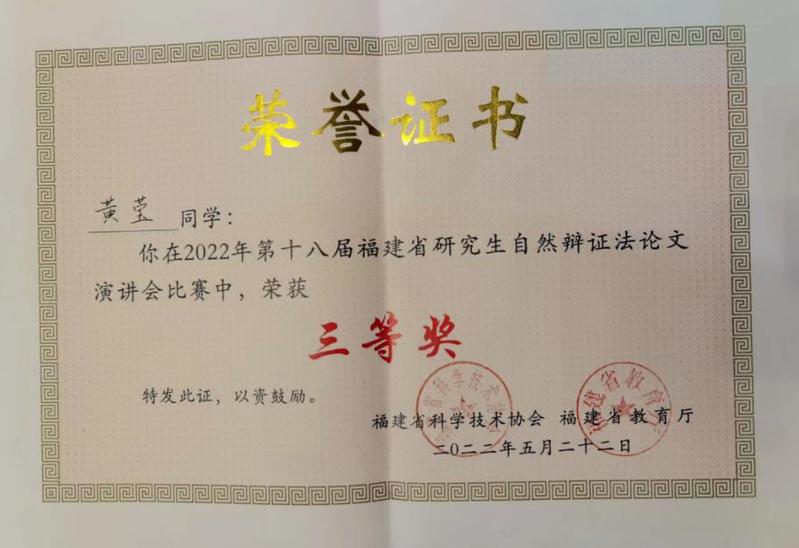 荣誉证书
黄莹 同学：
你在2022年第十八届福建省研究生自然辩证法论文
演讲会比赛中，荣获
三等奖
特发此证，以资鼓励。
福建省科学技术协会 福建省教育厅
二〇二二年五月二十二日
福建省科学技术协会
福建省教育厅